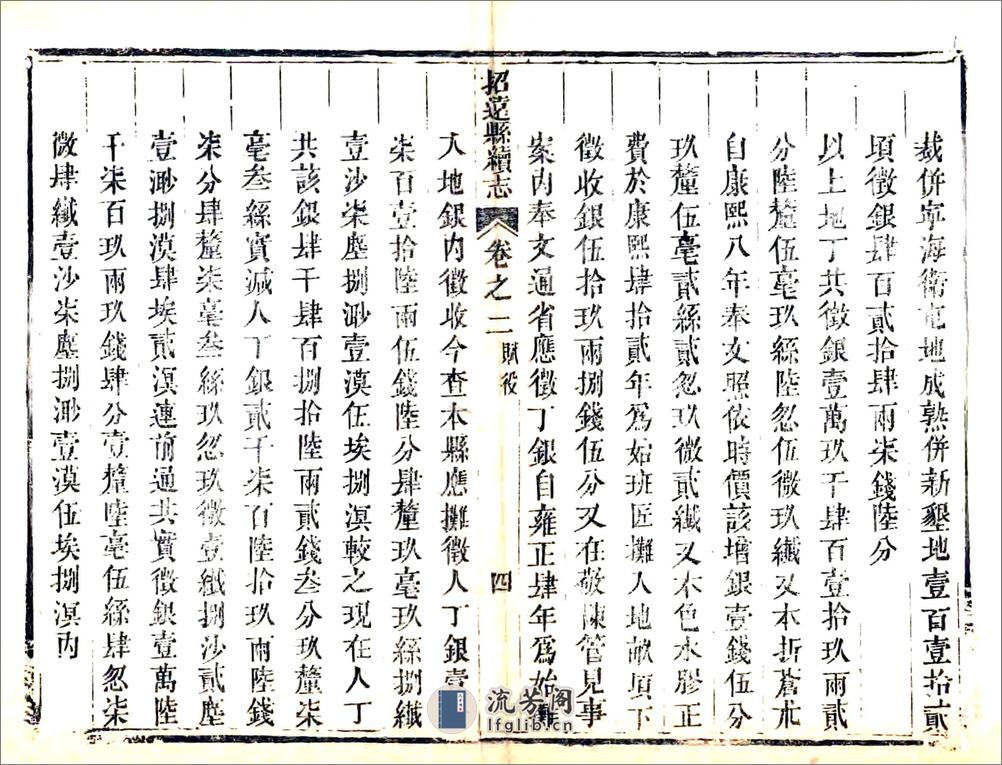 裁併寧海衛屯地成熟併新墾地壹百壹拾貳
項徵銀肆百貳拾肆兩柒錢陸分
以上地丁共徵銀壹萬玖千肆百壹拾玖兩貳
分陸釐伍毫玖絲陸忽伍微玖纖又本折蒼朮
自康熙八年奉文照依時價該增銀壹錢伍分
玖釐伍毫貳絲貳忽玖微貳纖又本色水膠正
費於康熙肆拾貳年爲始班匠攤入地畝項下
徵收銀伍拾玖兩捌錢伍分又在敬陳管見事
案內奉文通省應徵丁銀自雍正肆年爲始攤
招遠縣續志 卷之二 賦役 四
入地銀內徵收今查本縣應攤徵人丁銀壹
柒百壹拾陸兩伍錢陸分肆釐玖毫玖絲捌纖
壹沙柒塵捌渺壹漠伍埃捌溟較之現在人丁
共該銀肆千肆百捌拾陸兩貳錢叁分玖釐柒
毫叁絲實減人丁銀貳千柒百陸拾玖兩陸錢
柒分肆釐柒毫叁絲玖忽玖微壹纖捌沙貳塵
壹渺捌漠肆埃貳溟連前通共實徵銀壹萬陸
千柒百玖兩玖錢肆分壹釐陸毫伍絲肆忽柒
微肆纖壹沙柒塵捌渺壹漠伍埃捌溟內
流芳閣
lfglib.com